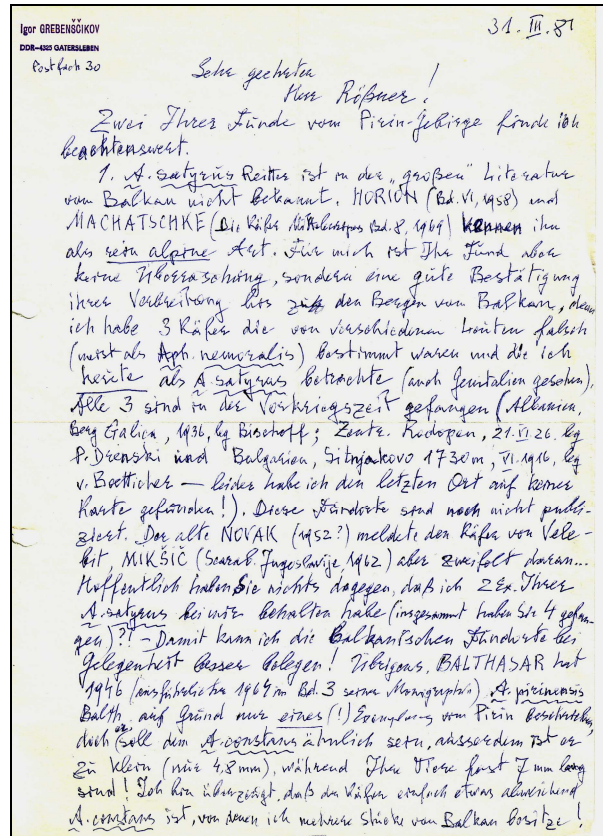 Igor GREBENŠČIKOV
DDR-4325 GATERSLEBEN
Postfach 30
31. III. 81
Sehr geehrter
Herr Rößner!
Zwei Ihrer Funde vom Pirin-Gebirge finde ich
beachtenswert.
1. A. satyrus Reitter ist in der „großen“ Literatur
vom Balkan nicht bekannt. HORION (Bd. VI, 1958) und
MACHATSCHKE (Die Käfer Mitteleuropas Bd. 8, 1969) kennen ihn
als rein alpine Art. Für mich ist Ihr Fund aber
keine Überraschung, sondern eine gute Bestätigung
ihrer Verbreitung bis den Bergen vom Balkan, denn
ich habe 3 Käfer die von verschiedenen Leuten falsch
(meist als Aph. nemoralis) bestimmt waren und die ich
heute als A. satyrus betrachte (auch Genitalien gesehen).
Alle 3 sind in der Vorkriegszeit gefangen (Albanien,
Berg Galica, 1936, lg Bischoff; Zentr. Rodopen, 21.VI.26. leg
P. Drenski und Bulgarien, Sitnjakovo 1730 m, VI.1916, leg
v. Boetticher – leider habe ich den letzten Ort auf keiner
Karte gefunden!). Diese Fundorte sind noch nicht publi-
ziert. Der alte NOVAK (1952?) meldete den Käfer von Vele-
bit, MIKŠIĆ (Scarab. Jugoslavije, 1962) aber zweifelt daran...
Hoffentlich haben Sie nichts dagegen, daß ich 2 Ex. Ihrer
A. satyrus bei mir behalten habe (insgesammt haben Sie 4 gefan-
gen)?! – Damit kann ich die Balkanischen Fundorte bei
Gelegenheit besser belegen! Übrigens, BALTHASAR hat
1946 (ausführlicher 1964 im Bd. 3 seiner Monographie) A. pirinensis
Balth. auf Grund nur eines (!) Exemplares vom Pirin beschrieben,
doch er soll dem A. constans ähnlich sein, ausserdem ist er
zu klein (nur 4,8 mm), während Ihre Tiere fast 7 mm lang
sind! Ich bin überzeugt, daß der Käfer einfach etwas abweichend
A. constans ist, von denen ich mehrere Stücke vom Balkan besitze!